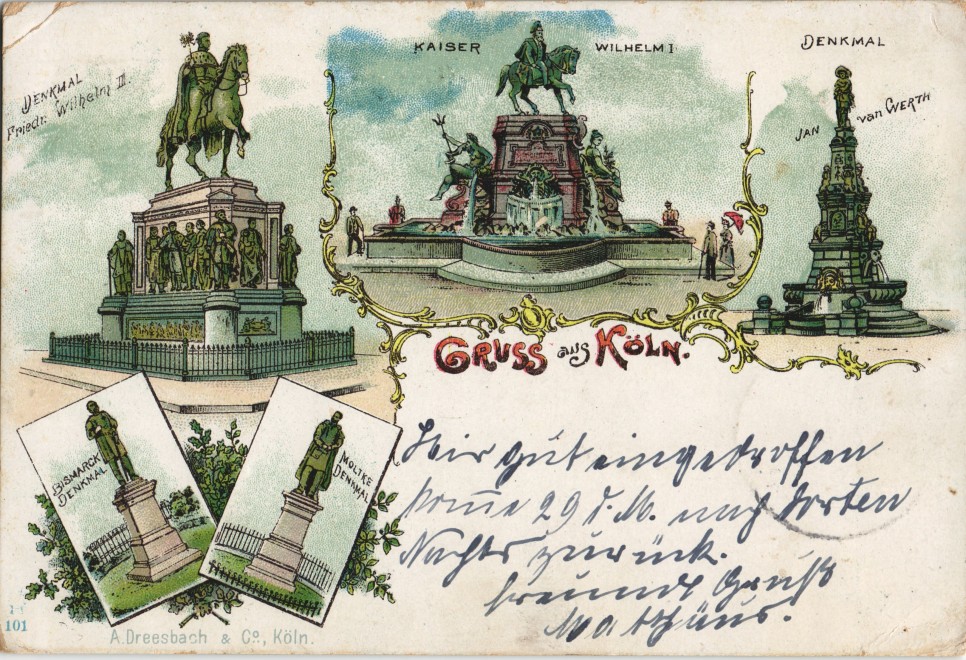 DENKMAL
Friedr. Wilhelm III.
KAISER WILHELM I
DENKMAL
JAN van WERTH
GRUSS aus KÖLN.
BISMARCK
DENKMAL
MOLTKE
DENKMAL
Wir gut eingedroffen
kom̄e 29 d. M. nach
Nachts zurück.
Freundl Gruß
Matthäus.
101
A. Dreesbach & Co., Köln.